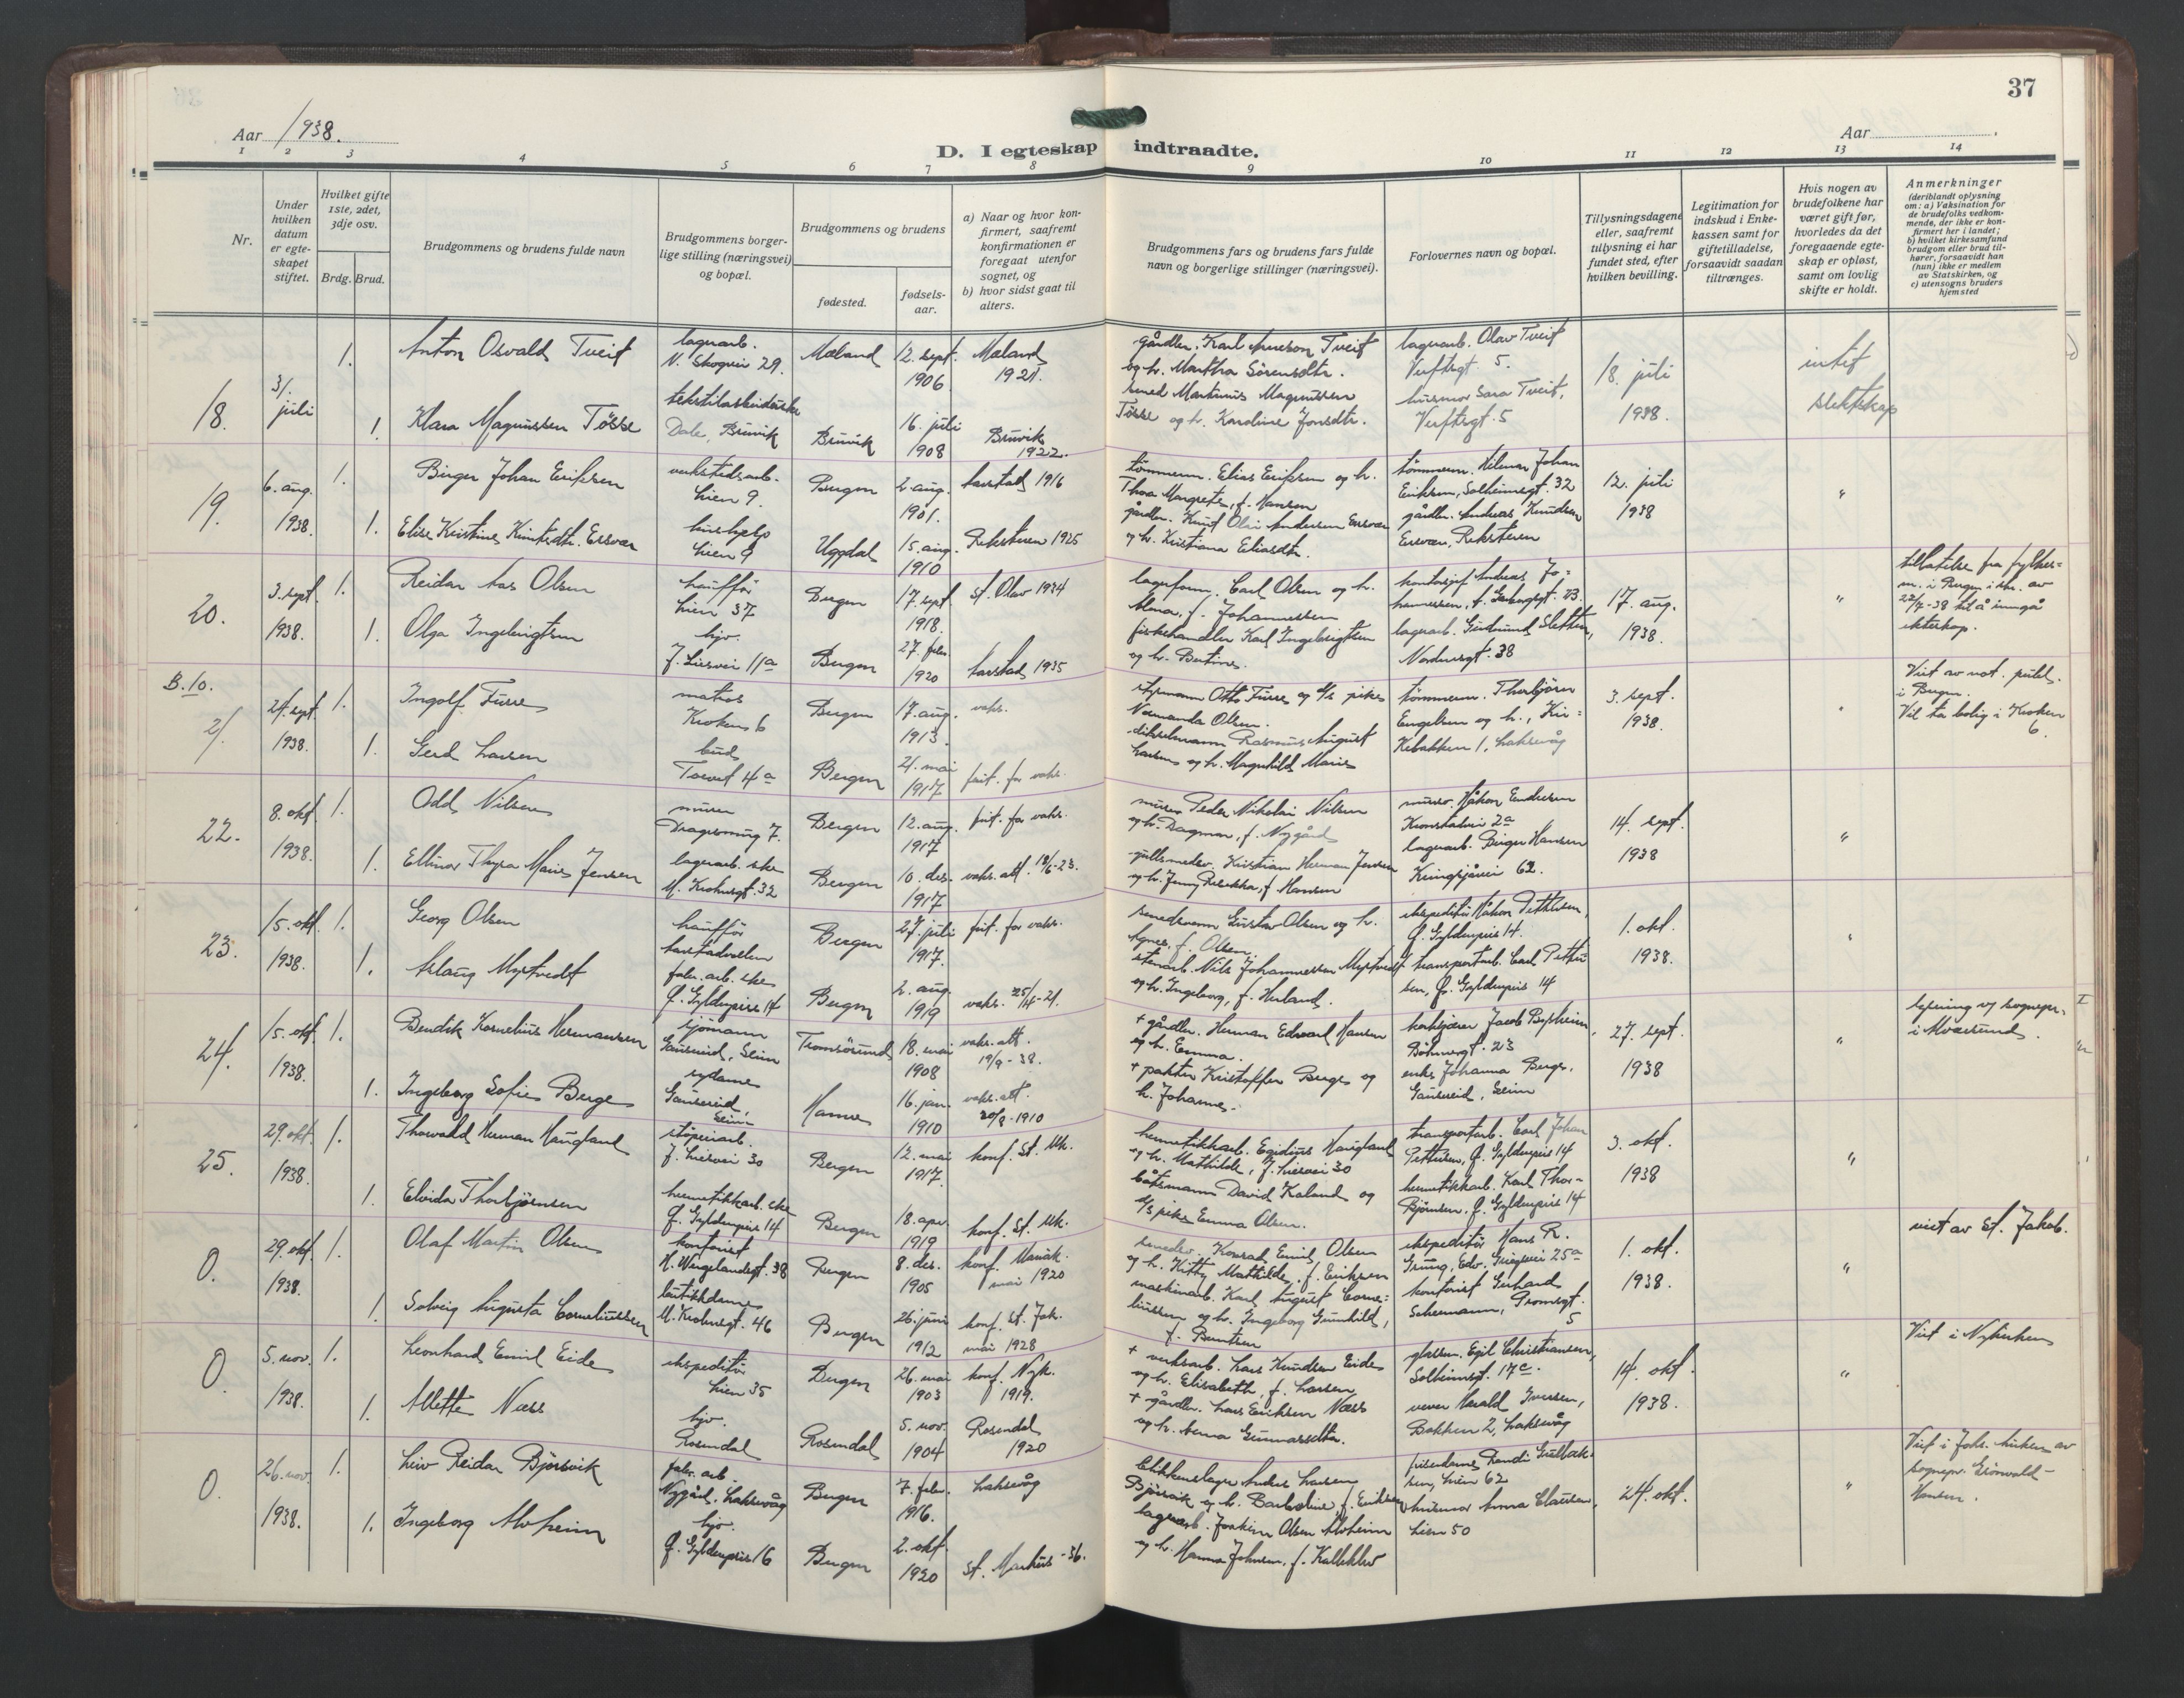 37
Aar 1938.
Aar
D. I egteskap indtraadte.
1 2 3 4 5 6 7 8 9 10 11 12 13 14
Nr.
Under hvilken datum er egte-skapet stiftet.
Hvilket gifte 1ste, 2det, 3dje osv.
Brdg. Brud.
Brudgommens og brudens fulde navn
Brudgommens borger-
lige stilling (næringsvei)
og bopæl.
Brudgommens og brudens
fødested.
fødsels-
aar.
a) Naar og hvor kon-
firmert, saafremt
konfirmationen er
foregaat utenfor
sognet, og
b) hvor sidst gaat til
alters.
Brudgommens fars og brudens fars fulde
navn og borgerlige stillinger (næringsvei).
Forlovernes navn og bopæl.
Tillysningsdagene
eller, saafremt
tillysning ei har
fundet sted, efter
hvilken bevilling.
Legitimation for
indskud i Enke-
kassen samt for
giftetilladelse,
forsaavidt saadan
tiltrænges.
Hvis nogen av
brudefolkene har
været gift før,
hvorledes da det
foregaaende egte-
skap er opløst,
samt om lovlig
skifte er holdt.
Anmerkninger
(deriblandt oplysning
om: a) Vaksination for
de brudefolks vedkom-
mende, der ikke er kon-
firmert her i landet;
b) hvilket kirkesamfund
brudgom eller brud til-
hører, forsaavidt han
(hun) ikke er medlem
av Statskirken, og
c) utensogns bruders
hjemsted
18.
31. juli
1. Anton Osvald Tveit
lagerarb.
N. Skogvei 29.
Mæland
12. sept. 1906
Mæland 1921.
gårdbr. Karl Tveit
og h. Martha Sörensdtr.
lagerarb. Olav Tveit
Verftsgt. 5.
18. juli 1938.
intet slektskap
1. Klara Magnussen Tösse
tekstilarbeiderske
Dale, Bruvik
Bruvik
16. juli 1908
Bruvik 1922.
smed Martinus Magnussen
Tösse og h. Karoline Jonsdtr.
husmor Sara Tveit,
Verftsgt. 5
19.
6. aug. 1938.
1. Birger Johan Eriksen
verkstedsarb.
Lien 9.
Bergen
2. aug. 1901.
Årstad 1916
tömmerm. Elias Eriksen og h.
Thea Margrete, f. Hansen
tömmerm. Hilmar Johan
Eriksen, Solheimsgt. 32
12. juli 1938
"
1. Elise Kristine Knutsdtr. Ersvær
hushjelp
Lien 9
Uggdal
15. aug. 1910
Reksteren 1925
gårdbr. Knut Andersen Ersvær
og h. Kristiana Eliasdtr.
gårdbr. Andreas Knudsen
Ersvær, Reksteren
20.
3. sept. 1938.
1. Reidar Aas Olsen
chauffør
Lien 37
Bergen
17. sept. 1918.
St. Olav 1934
lagerform. Carl Olsen og h.
Alma, f. Johannessen
kontorsjef Andreas Jo-
hannessen,
17. aug. 1938.
"
tillatelse fra fylkes-
m. i Bergen av
22/7-38 til å inngå
ekteskap.
1. Olga Ingebrigtsen
hjv.
J. Liesvei 11a
Bergen
27. febr. 1920
Årstad 1935
fiskehandler Karl Ingebrigtsen
og h. Bertine.
lagerarb. Gudmund Sletten,
Nordnesgt. 38
B. 10.
21.
24. sept. 1938.
1. Ingolf Furre
matros
Kroken 6
Bergen
17. aug. 1913.
vaks.
styrmann Otto Furre og pike
Normanda Olsen.
tömmerm. Thorbjörn
Engelsen og h., Kir-
kebakken 1, Laksevåg
3. sept. 1938.
Viet av not. publ.
i Bergen.
Vil ta bolig i Kroken
6.
1. Gerd Larsen
bud
Torvet 4a
Bergen
21. mai 1917
frit. for vaks.
Rasmus August
Larsen og h. Magnhild Marie
22.
8. okt. 1938.
1. Odd Nilsen
murer
Dragesmug 7.
Bergen
12. aug. 1917
frit. for vaks.
murer Peder Nikolai Nilsen
og h. Dagmar, f. Nygård
murer. Håkon Endresen
Kronstadvei 2a
14. sept. 1938
"
1. Ellinor Thyra Marie Jensen
lagerarb. ske
M. Krohnsgt. 32
Bergen
10. des. 1917
vaks. att. 18/6-23.
gullsmedsv. Kristian Herman Jensen
og h. Jenny Rebekka, f. Hansen
lagerarb. Birger Hansen
Kringsjåvei 62.
23.
15. okt. 1938.
1. Georg Olsen
chauffør
Årstadvollen
Bergen
27. juli 1917.
frit. for vaks.
smedsvenn Gustav Olsen og h.
Agnes, f. Olsen
ekspeditör Håkon Pettersen,
G. Gyldenpris 14.
1. okt. 1938.
1. Aslaug Myrtvedt
fabr. arb. ske
G. Gyldenpris 14
Bergen
2. aug. 1919
vaks. 25/4-21.
stenarb. Nils Johannessen Myrtvedt
og h. Ingeborg, f. Herland.
transportarb. Carl Petter-
sen, G. Gyldenpris 14
24.
15. okt. 1938.
1. Bendik Kornelius Hermansen
sjömann
Gausereid, Seim
Tromsösund
18. mai 1908
vaks. att.
19/9-38.
+ gårdbr. Herman Edvard Hansen
og h. Emma.
Jacob Bysheim,
Böhmergt. 23
27. sept. 1938
"
lysning v/ sognepr.
i Alversund.
1. Ingeborg Sofie Berge
sydame
Gausereid,
Seim
Hamre
16. jan. 1910
vaks. att.
20/8-1910
+ pakter Kristoffer Berge og
h. Johanne.
enke Johanna Berge,
Gausereid, Seim
25.
29. okt. 1938.
1. Thorvald Herman Haugland
støperiarb.
J. Liesvei 30
Bergen
12. mai 1917.
konf. St. Mk.
hermetikkarb. Egidius Haugland
og h. Mathilde, J. Liesvei 30
transportarb. Carl Johan
Pettersen, G. Gyldenpris 14
3. okt. 1938
"
1. Elvida Thorbjørnsen
hermetikkarb. ske
G. Gyldenpris 14
Bergen
18. apr. 1919
konf. St. Mk.
båtsmann David Kaland og
pike Emma Olsen.
hermetikkarb. Karl Thor-
bjørnsen, G. Gyldenpris 14
0.
29. okt. 1938.
1. Olaf Martin Olsen
kontorist
H. Wergelandsgt. 38
Bergen
8. des. 1905
konf. Mariak.
mai 1920
Konrad Emil Olsen
og h. Kitty Mathilde, f. Eriksen
ekspeditör Hans R.
Grung, Edv. Griegsvei 25a
1. okt. 1938.
"
viet av St. Jakob.
1. Solveig Augusta Corneliussen
butikkdame
M. Krohnsgt. 46
Bergen
26. juni 1912
konf. St. Jak.
mai 1928
maskinarb. Karl August Corne-
liussen og h. Ingeborg Gunhild,
f. Berntsen
kontorist Gerhard
Scheemann, Promsgt.
5
0.
5. nov. 1938.
1. Leonhard Emil Eide
ekspeditör
Lien 35
Bergen
26. mai 1903
konf. Nyk.
1919.
+ verksarb. Lars Knudsen Eide
og h. Elisabeth, f. Larsen
glassm. Egil Christiansen,
Solheimsgt. 17c.
14. okt. 1938.
"
Viet i Nykirken
1. Alette Næss
hjv.
Rosendal
Rosendal
5. nov. 1904
Rosendal
1920
+ gårdbr. Lars Eriksen Næss
og h. Anna Gunnarsdtr.
vever Harald Iversen,
Bakken 2, Laksevåg
0.
26. nov. 1938.
1. Leiv Reidar Bjørsvik
fabr. arb.
Nygård, Laksevåg
Bergen
7. febr. 1916.
Laksevåg
blikkenslager Anders Larsen
Bjørsvik og h. Barboline f. Eriksen
frisørdame Randi Gulbrak-
sen, Lien 62
24. okt.
"
Viet i Joh. kirken av
sognepr. Grönvald-
Hansen.
1. Ingeborg Alvheim
hjv.
G. Gyldenpris 16
Bergen
2. okt. 1920
St. Markus -36.
lagerarb. Joakim Olsen Alvheim
og h. Hanna Johnsen, f. Kallekleiv
husmor Anna Clausen,
Lien 50